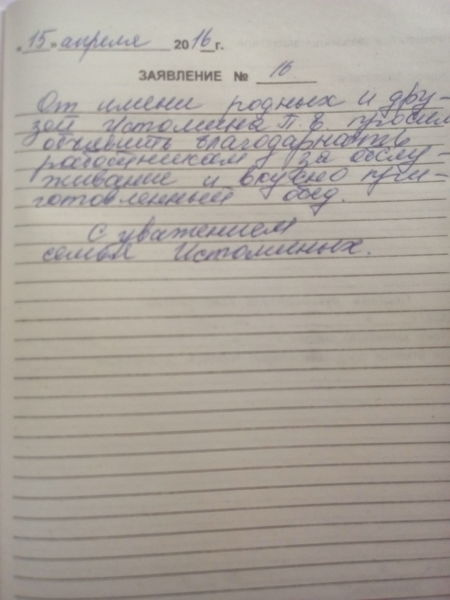 «15» апреля 2016 г.
ЗАЯВЛЕНИЕ № 16
От имени родных и дру-
зей Истомина П. В. просим
объявить благодарность
работникам за обслу-
живание и вкусно при-
готовленный обед.
С уважением
семья Истоминых.